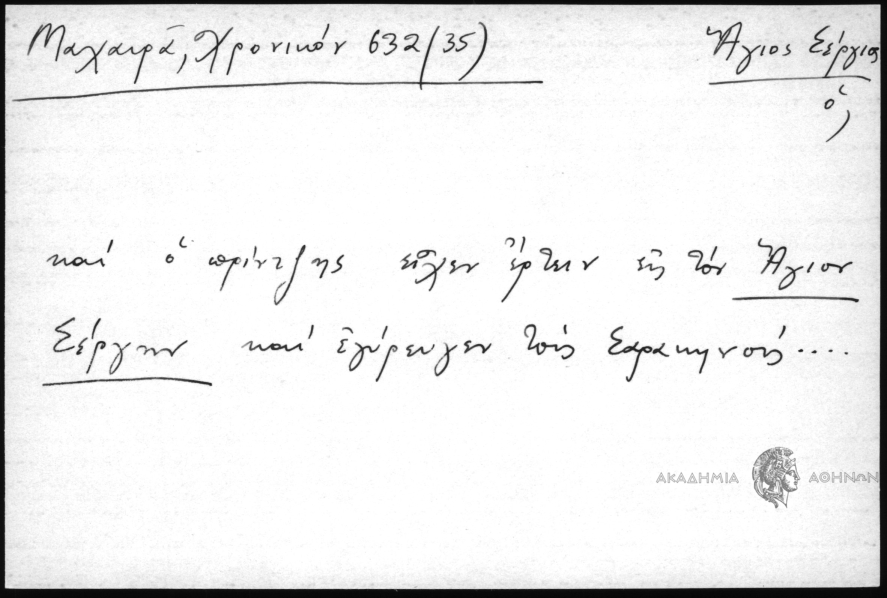 Μαχαιρᾶ, Χρονικόν 632 (35)
Ἅγιος Σέργιος
ὁ,
καί ὁ πρίντζης εἶχεν ἔρτειν εἰς τόν Ἅγιον
Σέργην καί ἐγύρευγεν τούς Σαρακηνούς....
ΑΚΑΔΗΜΙΑ ΑΘΗΝΩΝ